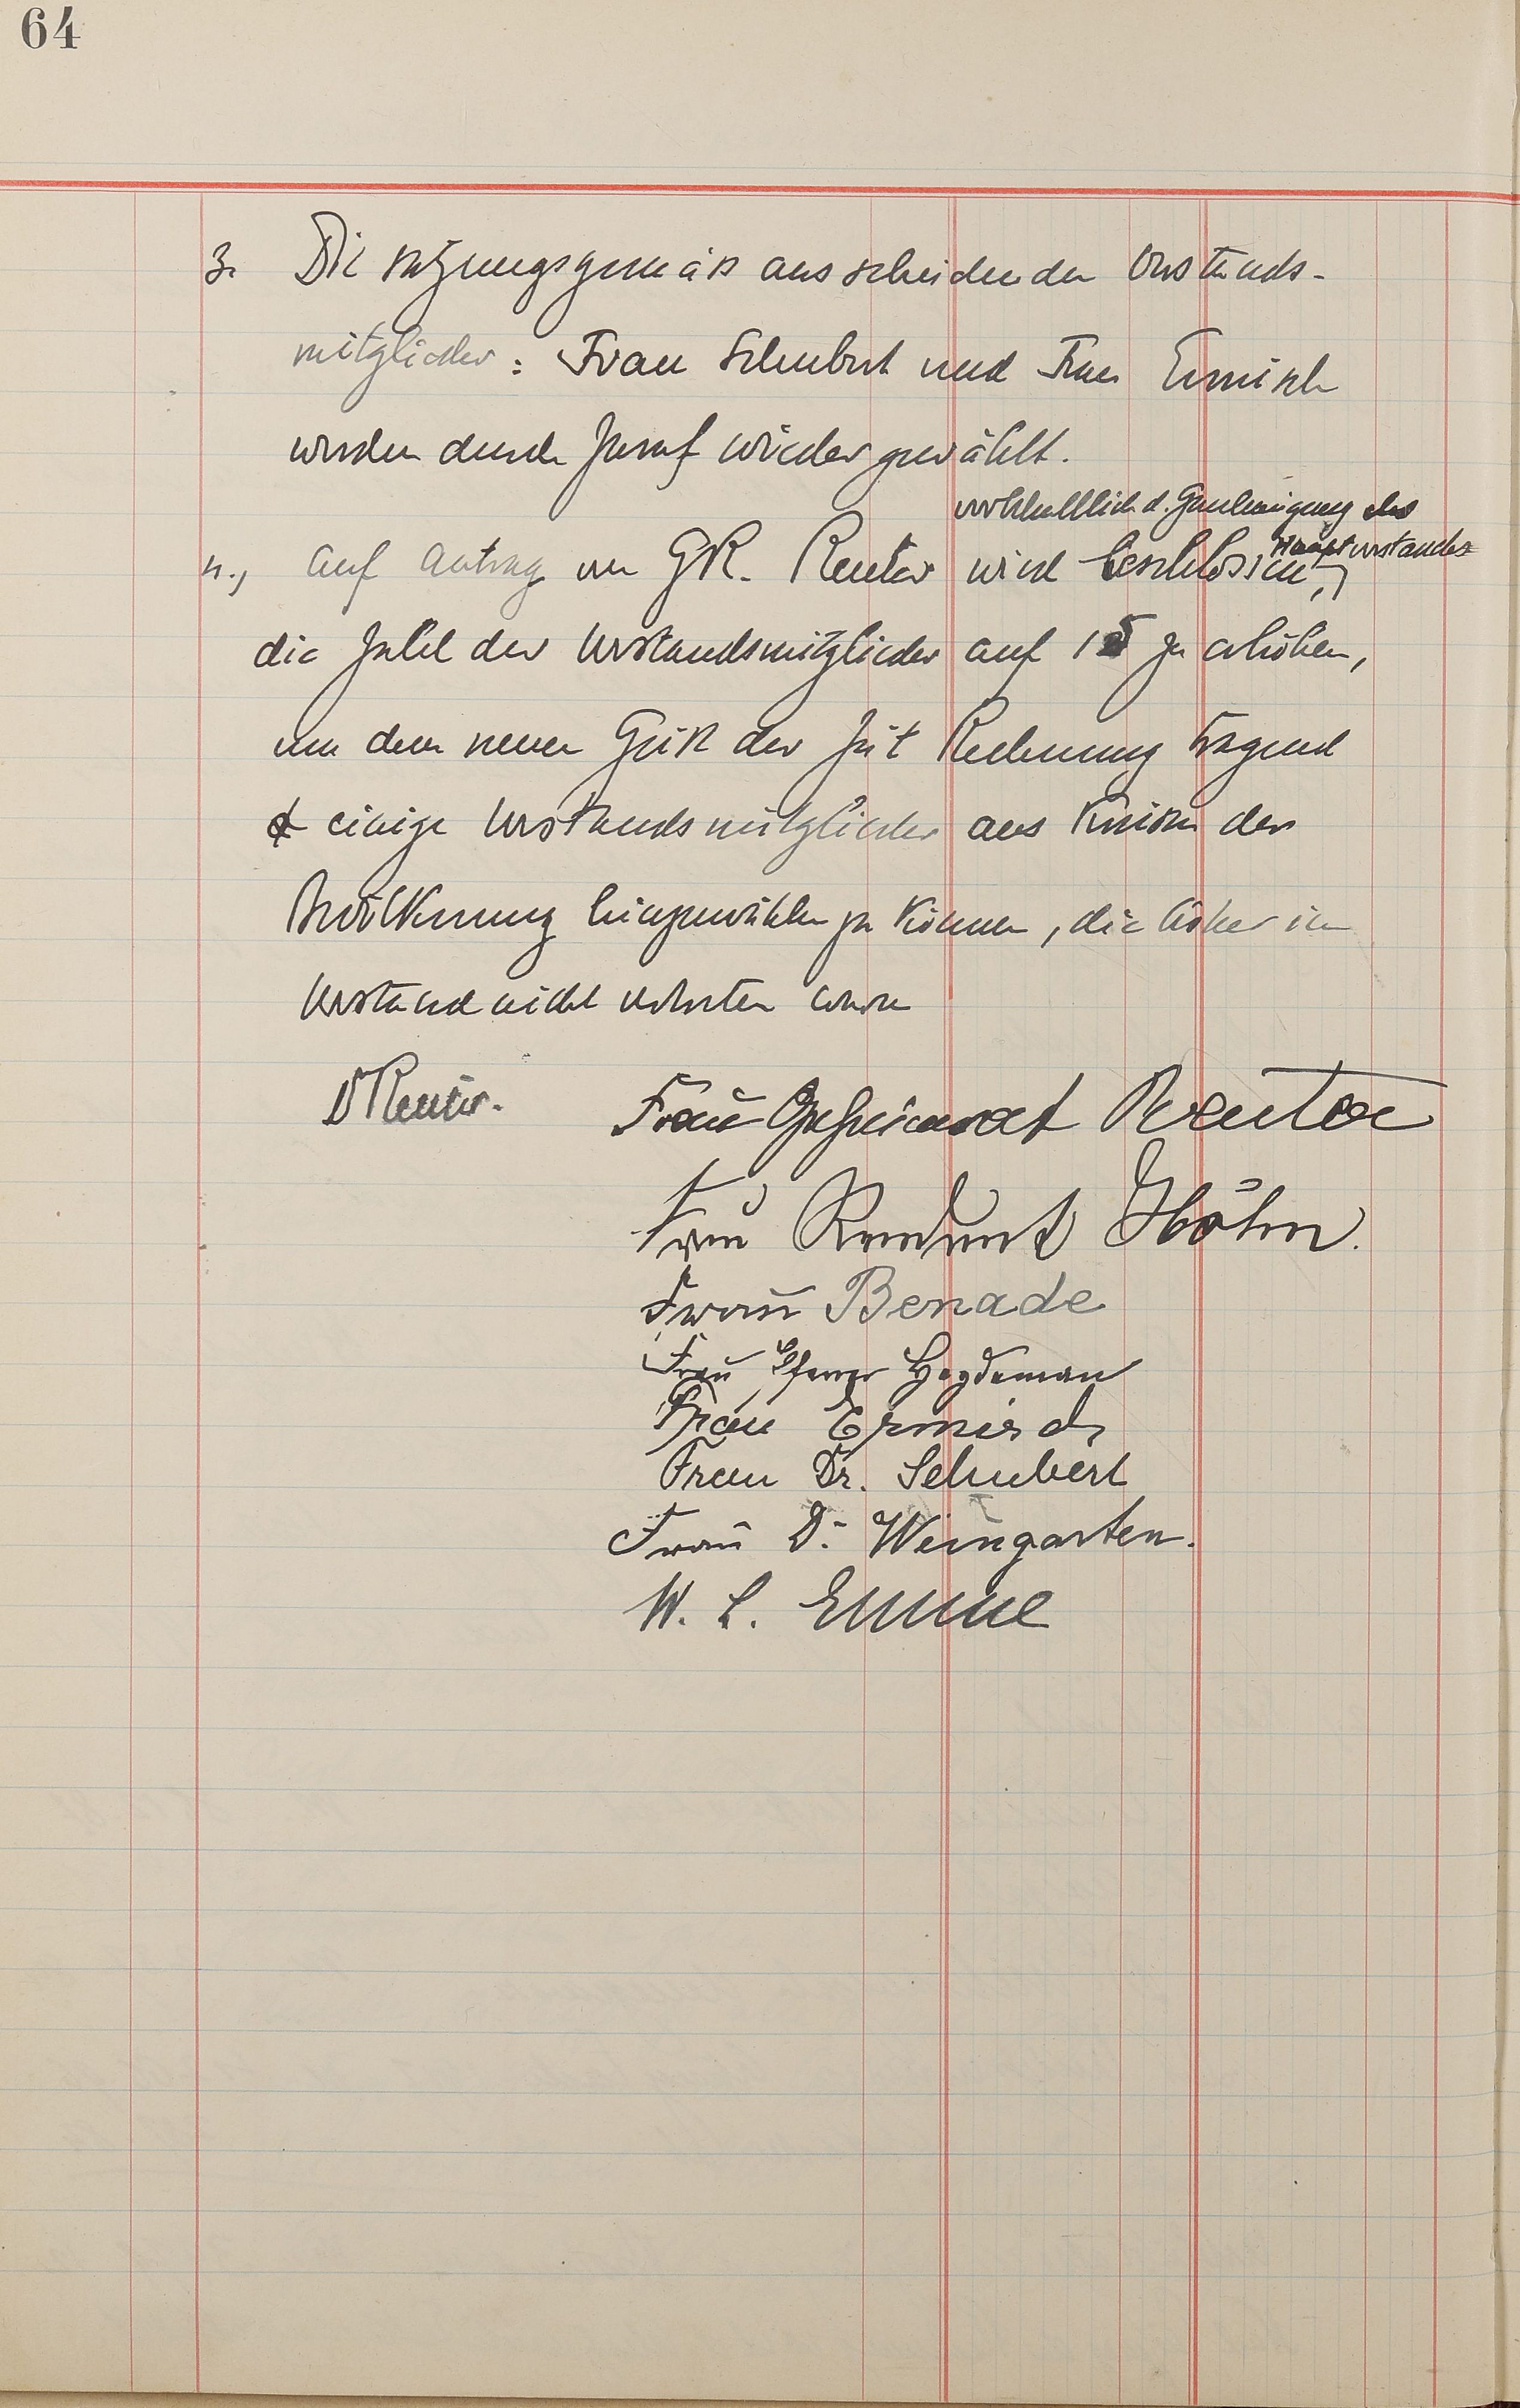 64
3. Die satzungsgemäß ausscheidenden Vorstands-
mitglieder: Frau Schubert und Frau Ermisch
werden durch Zuruf wiedergewählt.
vorbehaltlich d. Genehmigung des
Hauptvorstandes
4., Auf Antrag von GR. Reuter wird beschlossen,
die Zahl der Vorstandsmitglieder auf 15 zu erhöhen,
um dem neuen Geist der Zeit Rechnung tragend
einige Vorstandsmitglieder aus Kreisen der
Bevölkerung hinzuwählen zu können, die bisher im
Vorstand nicht vertreten waren
Dr Reuter.
Frau Geheimrat Reuter
Frau Rendant Höhn.
Frau Benade
Frau Pfarrer
Frau Ermisch
Frau Dr. Schubert
Frau Dr. Weingarten.
W. L. Emme